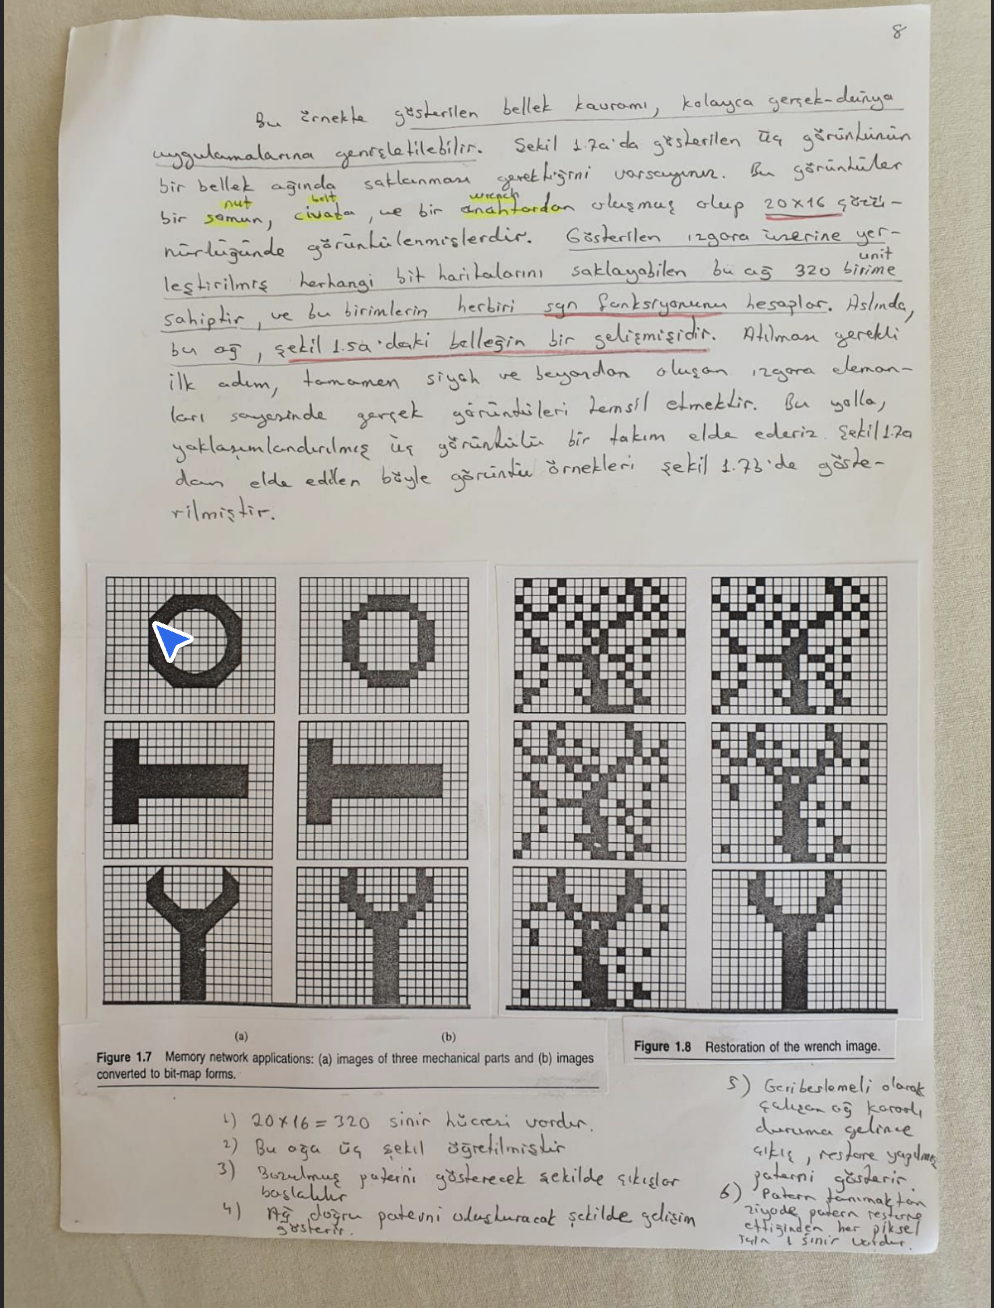 8
Bu örnekte gösterilen bellek kavramı, kolayca gerçek-dünya
uygulamalarına genişletilebilir. Şekil 1.7a'da gösterilen üç görüntünün
bir bellek ağında saklanması gerektiğini varsayınız. Bu görüntüler
nut bolt wrench
bir somun, civata, ve bir anahtardan oluşmuş olup 20x16 çözü-
nürlüğünde görüntülenmişlerdir. Gösterilen ızgara üzerine yer-
unit
leştirilmiş herhangi bit haritalarını saklayabilen bu ağ 320 birime
sahiptir, ve bu birimlerin herbiri sgn fonksiyonunu hesaplar. Aslında,
bu ağ, şekil 1.5a'daki belleğin bir gelişmişidir. Atılması gerekli
ilk adım, tamamen siyah ve beyazdan oluşan ızgara eleman-
ları sayesinde gerçek görüntüleri temsil etmektir. Bu yolla,
yaklaşımlandırılmış üç görüntülü bir takım elde ederiz. Şekil 1.7a
dan elde edilen böyle görüntü örnekleri şekil 1.7b'de göste-
rilmiştir.
(a) (b)
Figure 1.7 Memory network applications: (a) images of three mechanical parts and (b) images
converted to bit-map forms.
Figure 1.8 Restoration of the wrench image.
1) 20x16 = 320 sinir hücresi vardır.
2) Bu ağa üç şekil öğretilmiştir
3) Bozulmuş paterni gösterecek şekilde çıkışlar
başlatılır
4) Ağ doğru paterni oluşturacak şekilde gelişim
gösterir.
5) Geribeslemeli olarak
çalışan ağ kararlı
duruma gelince
çıkış, restore yapılmış
paterni gösterir.
6) Patern tanımaktan
ziyade patern restore
ettiğinden her piksel
için 1 sinir vardır.